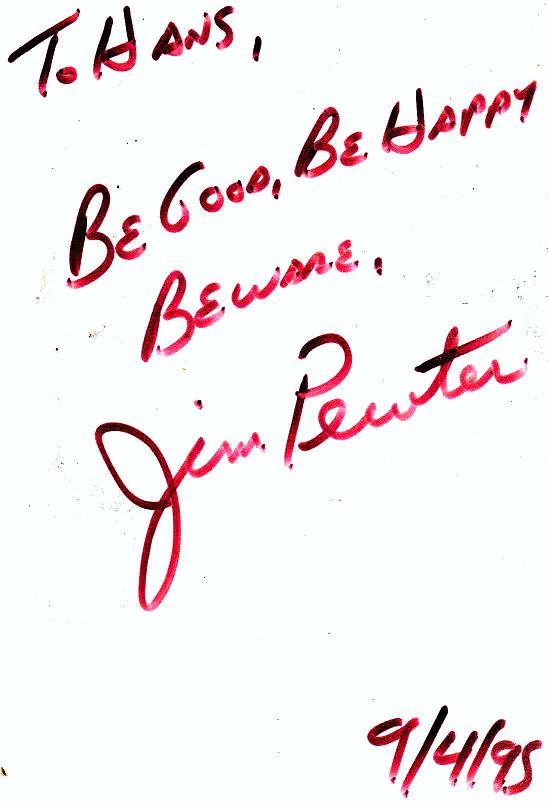 To HANS,
BE GOOD, BE HAPPY
BEWARE,
Jim Pewter
9/4/95